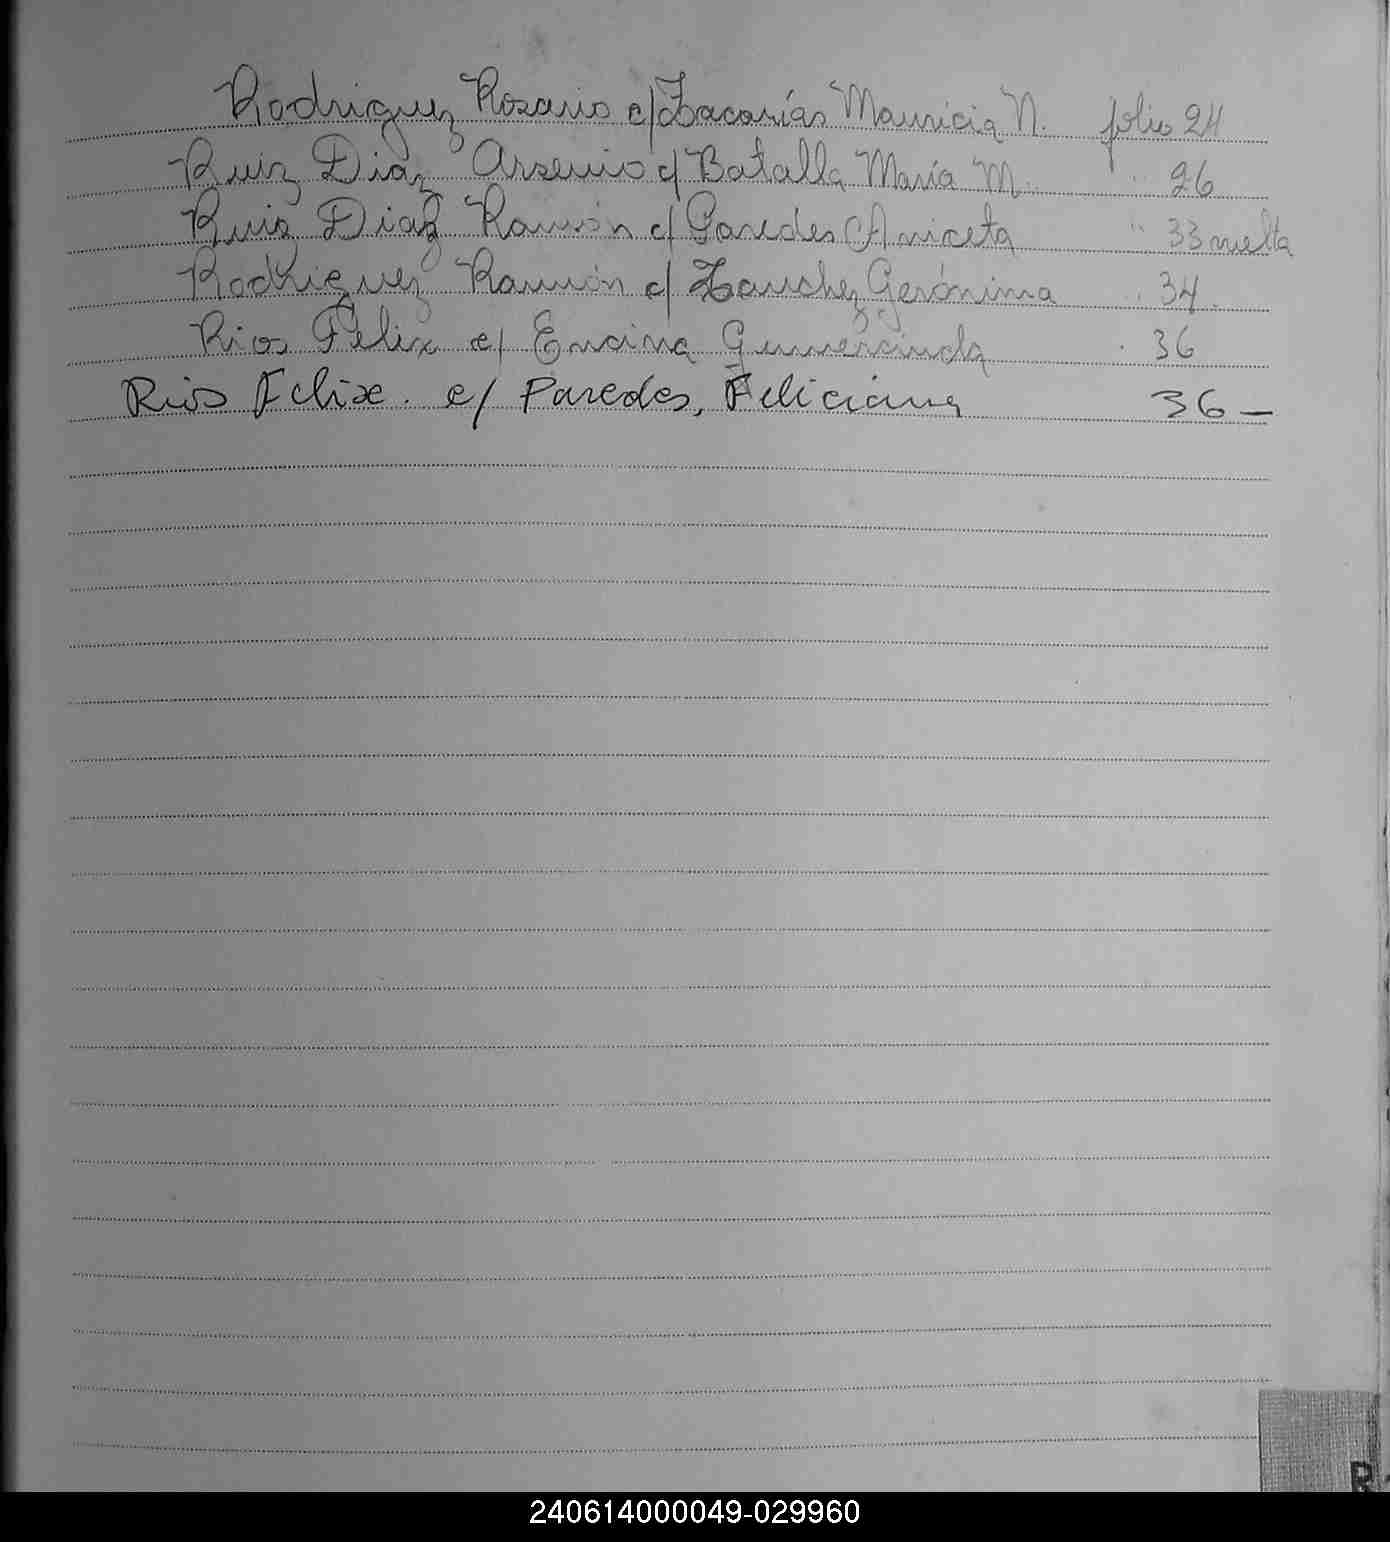 Rodriguez Rosario c/ Zacarías Mauricia N. folio 24
Ruiz Diaz Arsenio c/ Batalla María M. " 26
Ruiz Diaz Ramón c/ Paredes Aniceta " 33 vuelta
Rodriguez Ramón c/ Zanchez Gerónima " 34.
Rios Félix c/ Encina Gumercinda " 36
Rios Felix. c/ Paredes, Feliciana 36 —
R
240614000049-029960